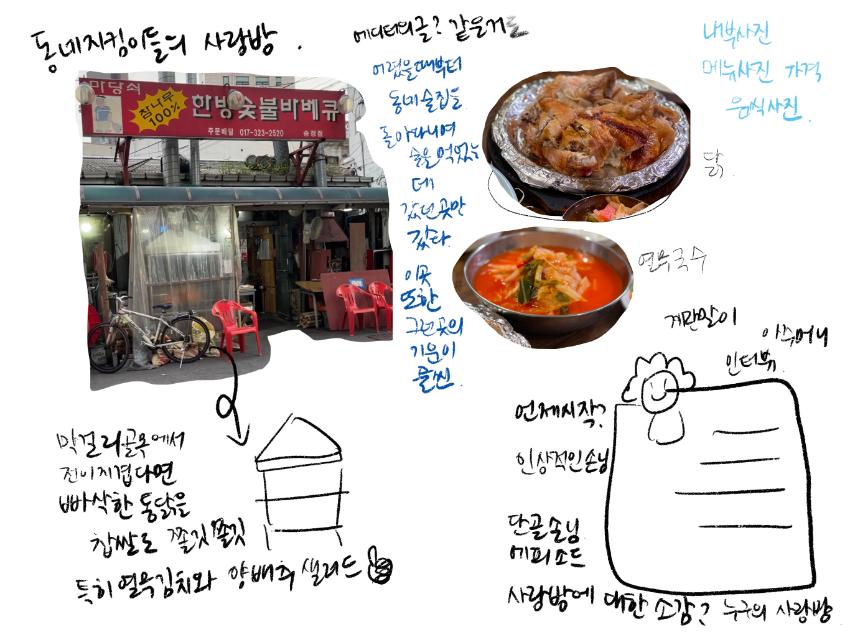 동네지킴이들의 사랑방 .
마당쇠
참나무
100%
한방숯불바베큐
주문배달 017-323-2520
에디터의글? 같은거들
어렸을때부터
동네술집들
돌아다니며
술을 먹었는
데
갔던곳만
갔다.
이곳
또한
그런곳의
기운이
물씬.
내부사진
메뉴사진 가격
음식사진
닭.
열무국수
막걸리골목에서
전이지겹다면
빠삭한 통닭을
찹쌀도 쫄깃쫄깃
특히 열무김치와 양배추 샐러드
계란말이
아주머니
인터뷰.
언제시작?
인상적인손님
단골손님
에피소드
사랑방에 대한 소감? 누구의 사랑방